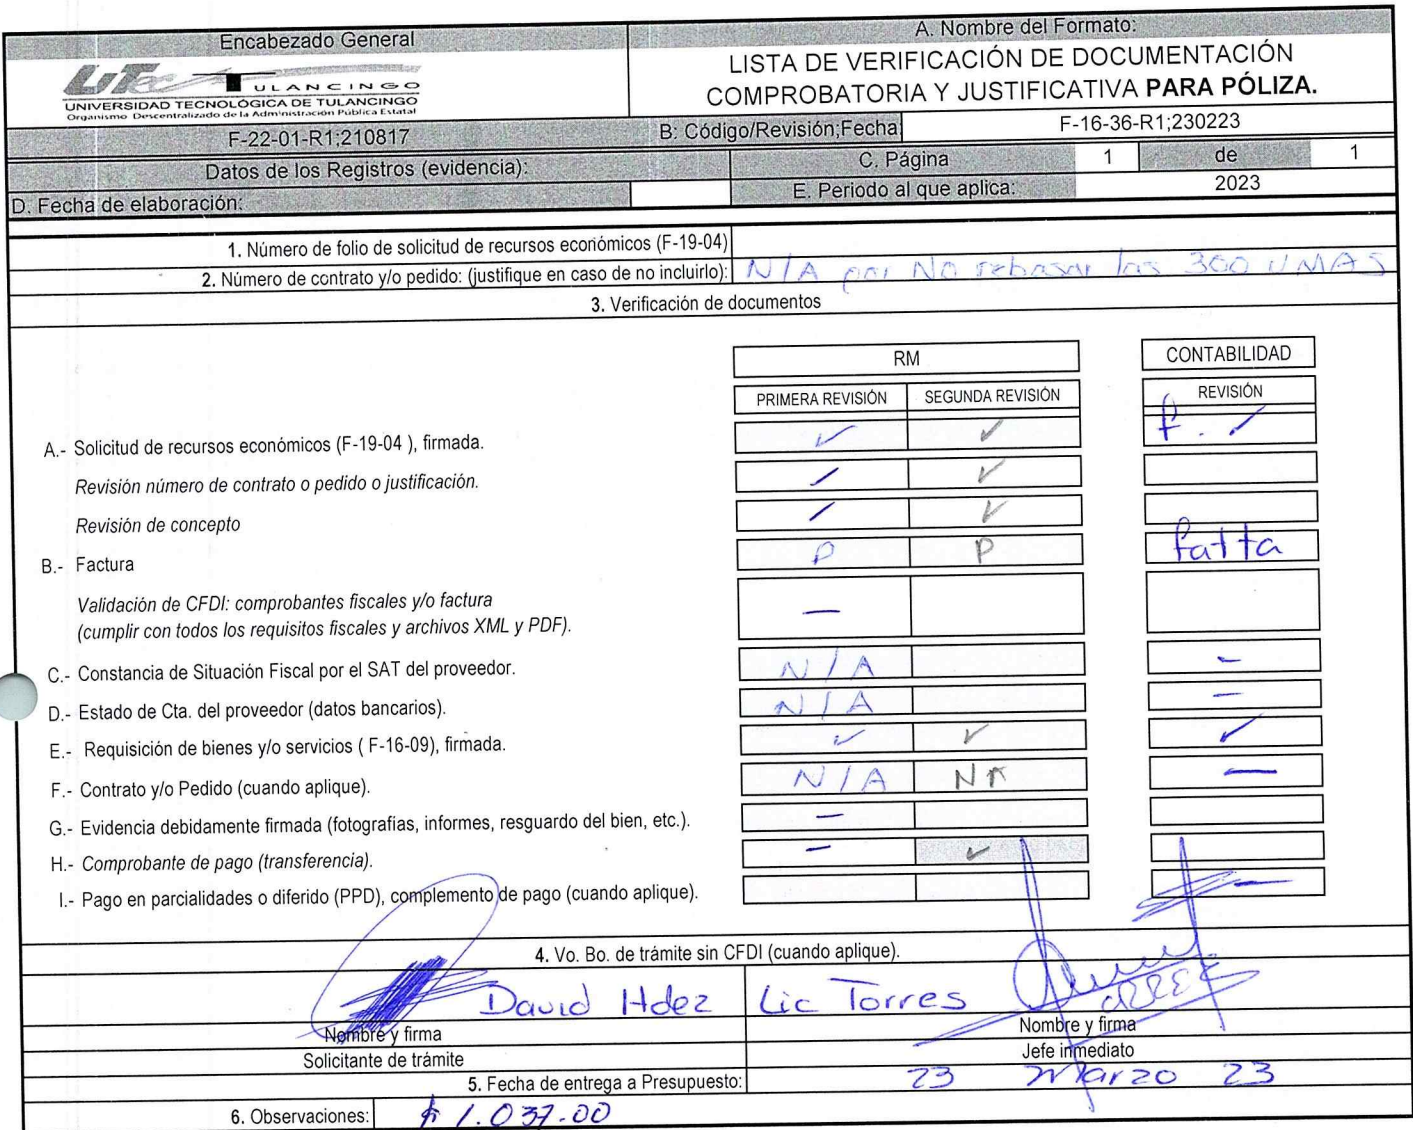 Encabezado General
A. Nombre del Formato:
TULANCINGO
UNIVERSIDAD TECNOLÓGICA DE TULANCINGO
Organismo Descentralizado de la Administración Pública Estatal
LISTA DE VERIFICACIÓN DE DOCUMENTACIÓN
COMPROBATORIA Y JUSTIFICATIVA PARA PÓLIZA.
F-22-01-R1;210817 B: Código/Revisión;Fecha: F-16-36-R1;230223
Datos de los Registros (evidencia): C. Página 1 de 1
D. Fecha de elaboración: E. Periodo al que aplica: 2023
1. Número de folio de solicitud de recursos económicos (F-19-04)
2. Número de contrato y/o pedido: (justifique en caso de no incluirlo): N/A por No rebasar las 300 UMAS
3. Verificación de documentos
RM CONTABILIDAD
PRIMERA REVISIÓN SEGUNDA REVISIÓN REVISIÓN
A.- Solicitud de recursos económicos (F-19-04 ), firmada. ✓ ✓ f. ✓
Revisión número de contrato o pedido o justificación. ✓ ✓
Revisión de concepto ✓ ✓
B.- Factura P P falta
Validación de CFDI: comprobantes fiscales y/o factura —
(cumplir con todos los requisitos fiscales y archivos XML y PDF).
C.- Constancia de Situación Fiscal por el SAT del proveedor. N/A –
D.- Estado de Cta. del proveedor (datos bancarios). N/A –
E.- Requisición de bienes y/o servicios ( F-16-09), firmada. ✓ ✓ ✓
F.- Contrato y/o Pedido (cuando aplique). N/A NA —
G.- Evidencia debidamente firmada (fotografias, informes, resguardo del bien, etc.). –
H.- Comprobante de pago (transferencia). – ✓
I.- Pago en parcialidades o diferido (PPD), complemento de pago (cuando aplique). –
4. Vo. Bo. de trámite sin CFDI (cuando aplique).
David Hdez Lic Torres
Nombre y firma Nombre y firma
Solicitante de trámite Jefe inmediato
5. Fecha de entrega a Presupuesto: 23 Marzo 23
6. Observaciones: $ 1.037.00